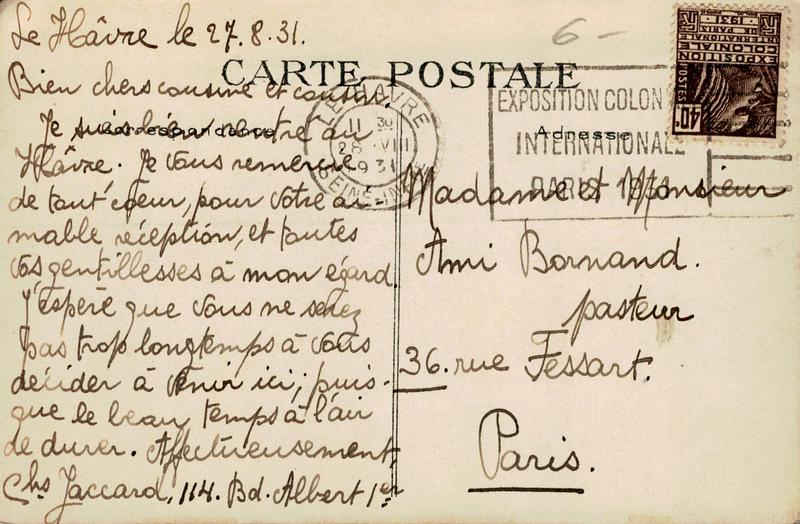 Le Hâvre le 27.8.31.
CARTE POSTALE
Bien chers cousine et cousin.
Correspondance
Je suis bien rentré au
Hâvre. Je vous remercie
de tout cœur, pour votre ai
mable réception, et toutes
vos gentillesses à mon égard.
J'espère que vous ne serez
pas trop longtemps à vous
décider à venir ici, puis-
que le beau temps à l'air
de durer. Affectueusement,
Chs Jaccard, 114. Bd. Albert 1er
6-
LE HAVRE
11 30
28 VIII
31
SEINE-INFRE
EXPOSITION COLON
INTERNATIONALE
PARIS 1931
EXPOSITION
COLONIALE
INTERNATIONALE
DE PARIS
1931
POSTES
40c
Adresse
Madame et Monsieur
Ami Bornand.
pasteur
36. rue Fessart.
Paris.